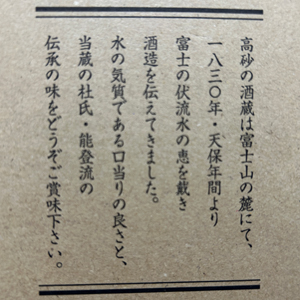 高砂の酒蔵は富士山の麓にて、
一八三〇年・天保年間より
富士の伏流水の恵を戴き
酒造を伝えてきました。
水の気質である口当りの良さと、
当蔵の杜氏・能登流の
伝承の味をどうぞご賞味下さい。